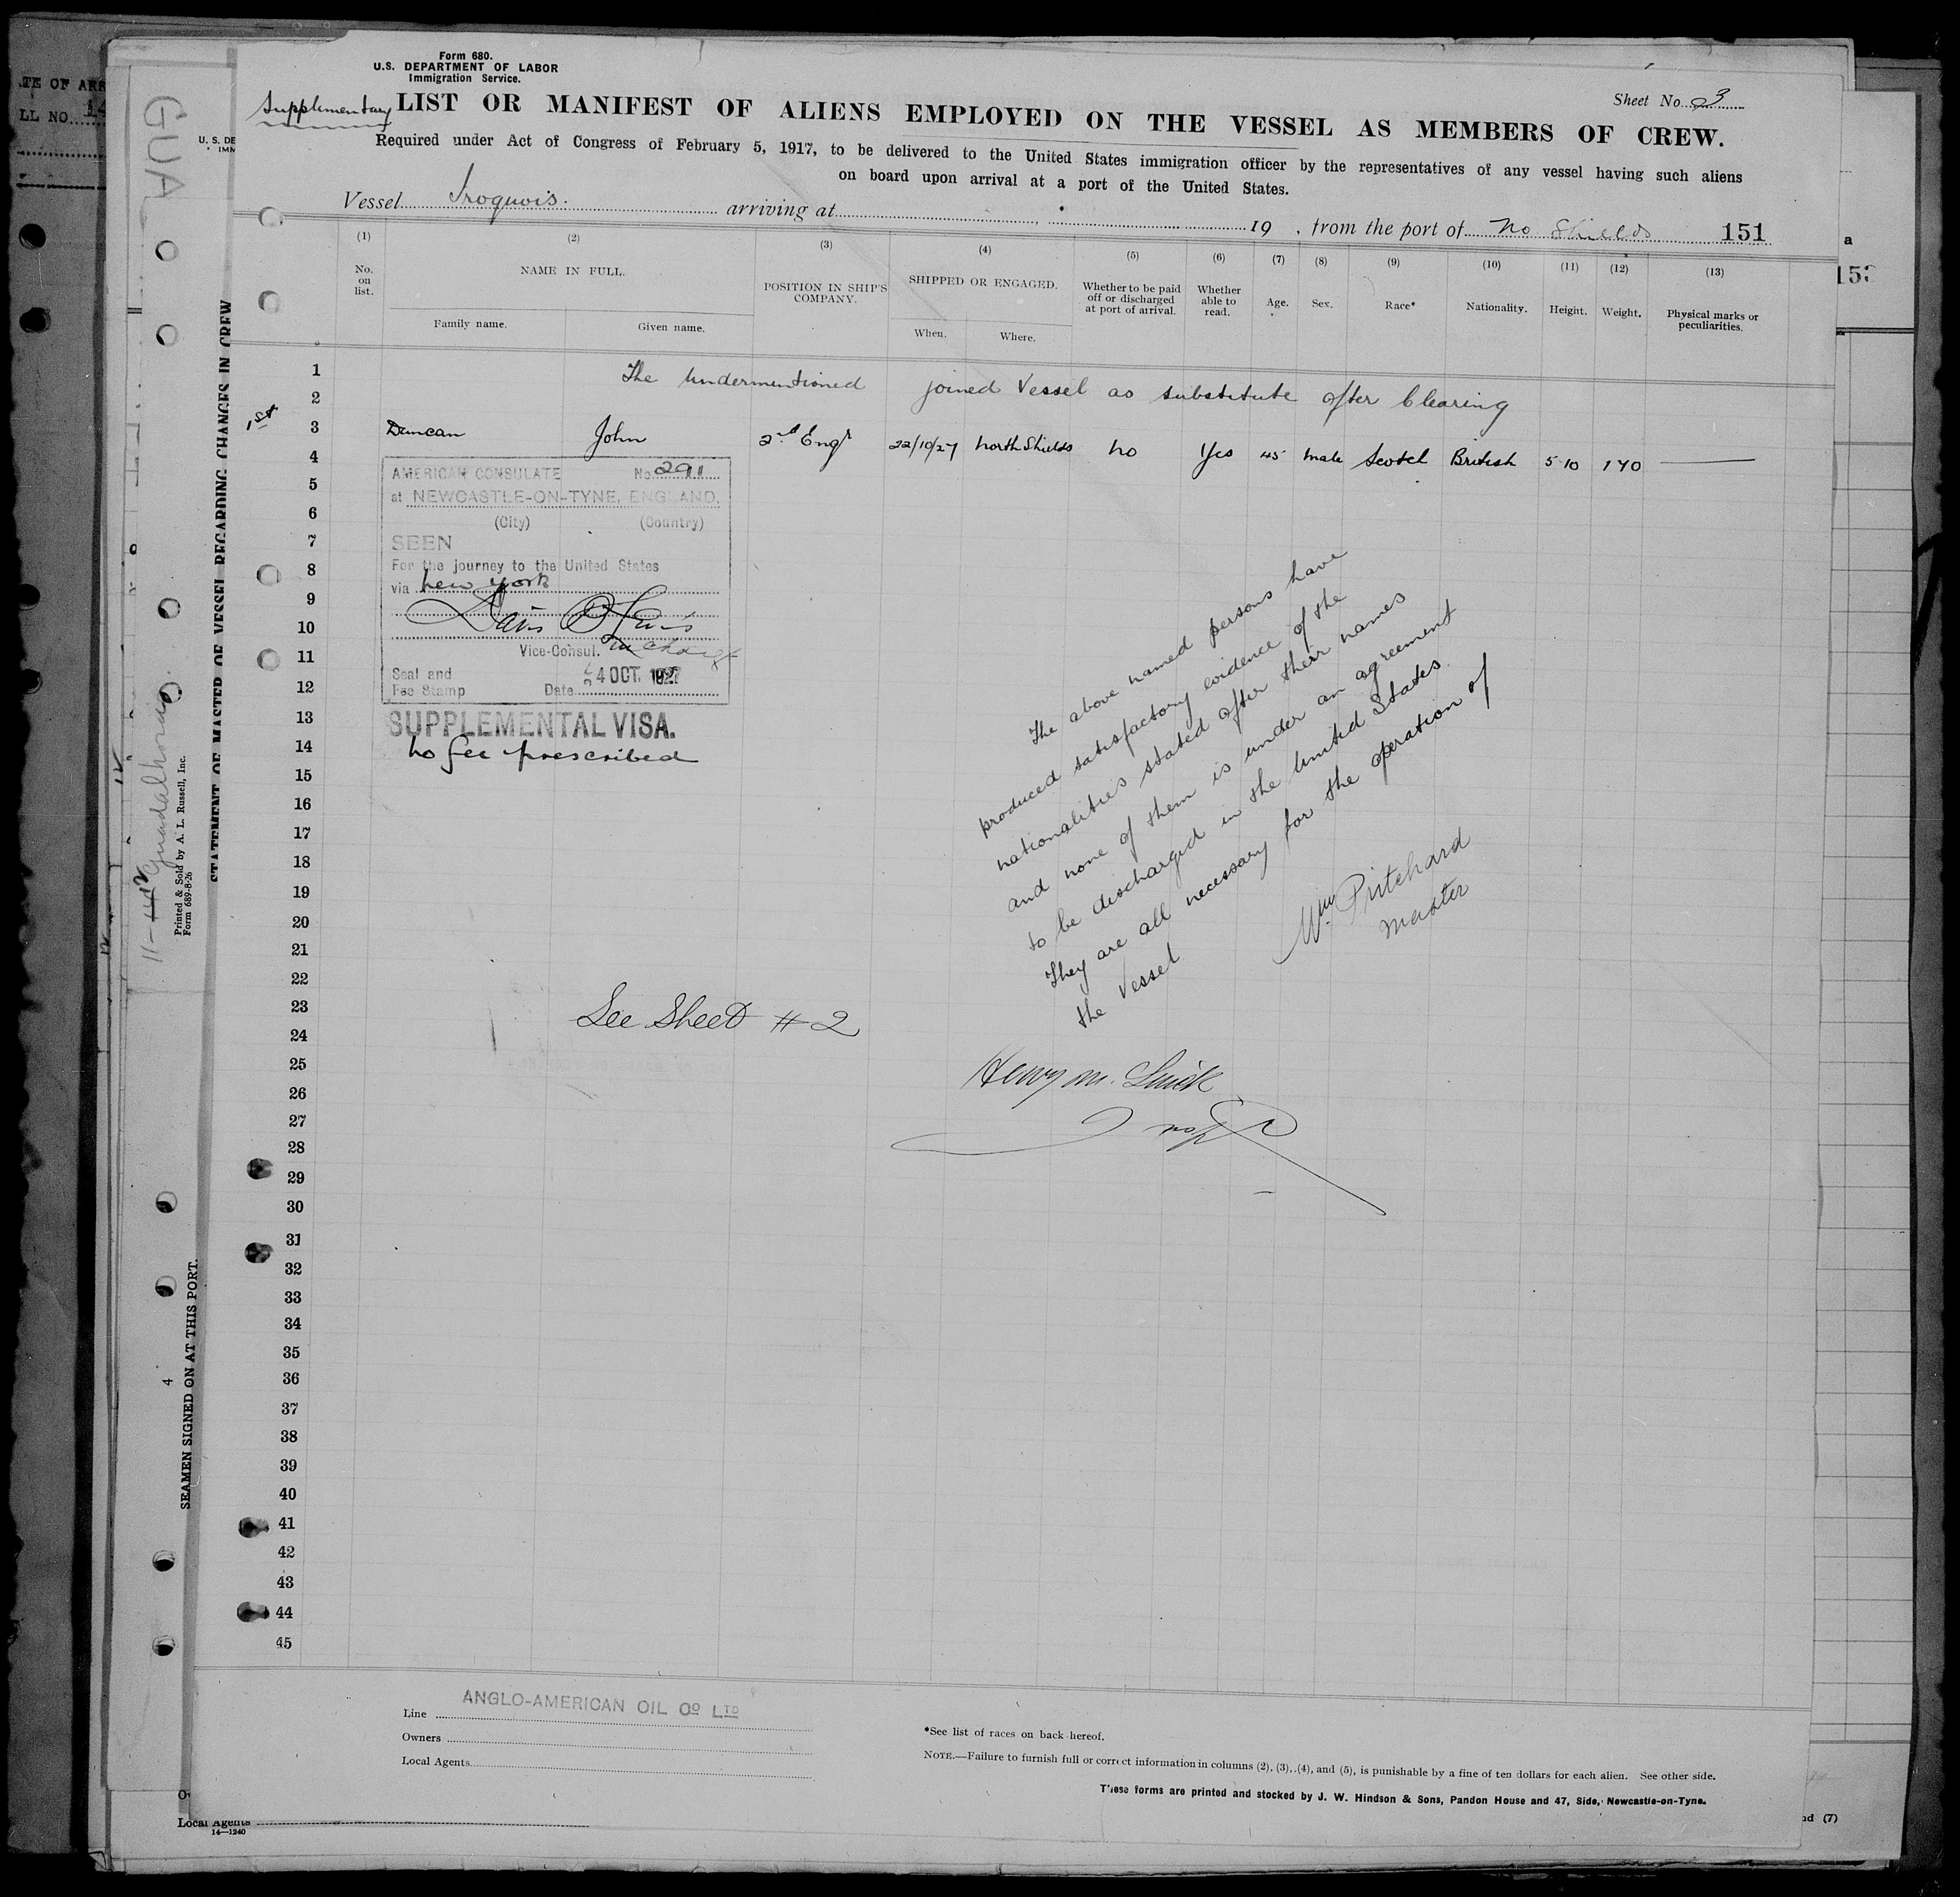 Form 680.
U.S. DEPARTMENT OF LABOR
Immigration Service.
Supplementary LIST OR MANIFEST OF ALIENS EMPLOYED ON THE VESSEL AS MEMBERS OF CREW.
Sheet No. 3
Required under Act of Congress of February 5, 1917, to be delivered to the United States immigration officer by the representatives of any vessel having such aliens
on board upon arrival at a port of the United States.
Vessel Iroquois. arriving at 19 , from the port of No Shields 151
(1) (2) (3) (4) (5) (6) (7) (8) (9) (10) (11) (12) (13)
No. on list.
NAME IN FULL.
Family name. Given name.
POSITION IN SHIP'S COMPANY.
SHIPPED OR ENGAGED.
When. Where.
Whether to be paid off or discharged at port of arrival.
Whether able to read.
Age.
Sex.
Race*
Nationality.
Height.
Weight.
Physical marks or peculiarities.
1 The undermentioned joined Vessel as substitute after Clearing
2
1st 3 Duncan John 2nd Engr 22/10/27 North Shields No Yes 45 male Scotch British 5-10 170
4
5
6
7
8
9
10
11
12
13
14
15
16
17
18
19
20
21
22
23
24
25
26
27
28
29
30
31
32
33
34
35
36
37
38
39
40
41
42
43
44
45
AMERICAN CONSULATE No. 291
at NEWCASTLE-ON-TYNE, ENGLAND.
(City) (Country)
SEEN
For the journey to the United States
via New York
Vice-Consul. in charge
Seal and
Fee Stamp Date 24 OCT. 1927
SUPPLEMENTAL VISA.
No fee prescribed
The above named persons have
produced satisfactory evidence of the
nationalities stated after their names
and none of them is under an agreement
to be discharged in the United States.
They are all necessary for the operation of
the Vessel
Wm Pritchard
Master
See Sheet #2
Henry M.
Line ANGLO-AMERICAN OIL Co LTD
Owners
Local Agents
*See list of races on back hereof.
NOTE.—Failure to furnish full or correct information in columns (2), (3), (4), and (5), is punishable by a fine of ten dollars for each alien. See other side.
These forms are printed and stocked by J. W. Hindson & Sons, Pandon House and 47, Side, Newcastle-on-Tyne.
STATEMENT OF MASTER OF VESSEL REGARDING CHANGES IN CREW
SEAMEN SIGNED ON AT THIS PORT.
Printed & Sold by A. L. Russell, Inc.
Form 689-8-26
GUA
4
Local Agents
14—1240